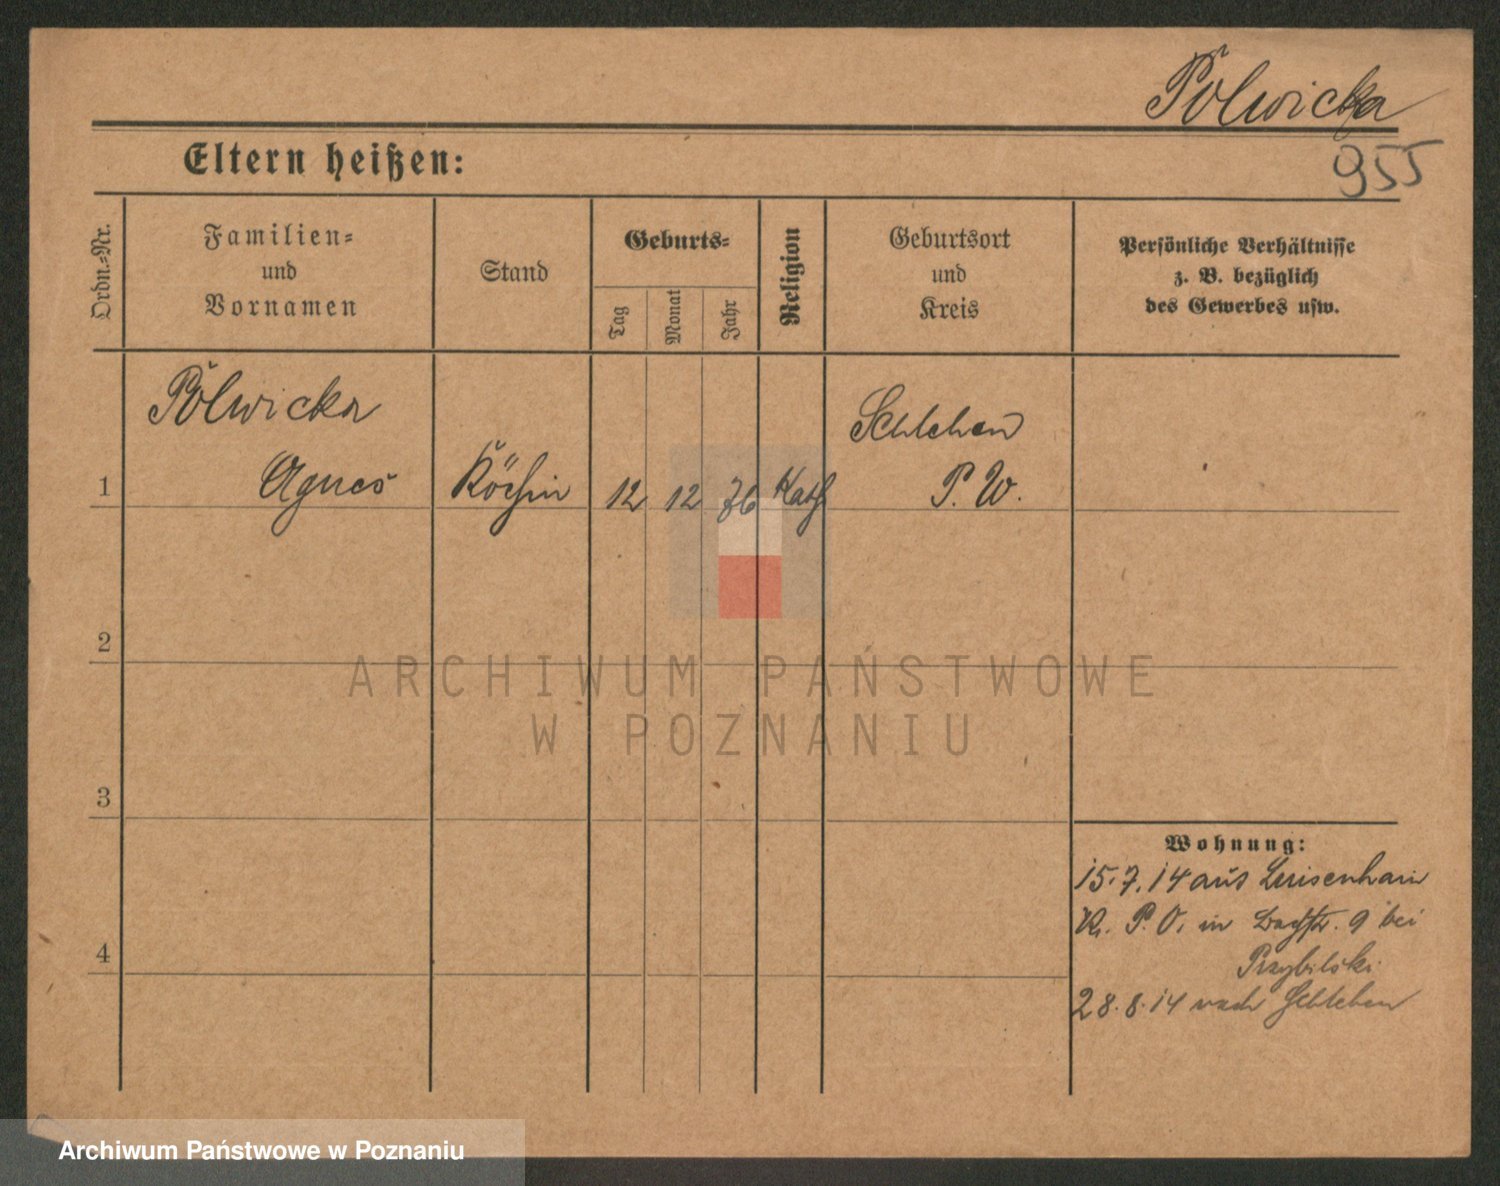 Polwicka
955
Eltern heißen:
Ordn.=Nr.
Familien=
und
Vornamen
Stand
Geburts=
Tag
Monat
Jahr
Religion
Geburtsort
und
Kreis
Persönliche Verhältnisse
z. B. bezüglich
des Gewerbes usw.
Polwicka
Schlehen
1 Agnes Köchin 12 12 76 Kath P. W.
2
3
4
Wohnung:
15.7.14 aus Luisenhain
Kr. P. O. in 9 bei
Przybilski
28.8.14 nach Schlehen
ARCHIWUM PAŃSTWOWE
W POZNANIU
Archiwum Państwowe w Poznaniu